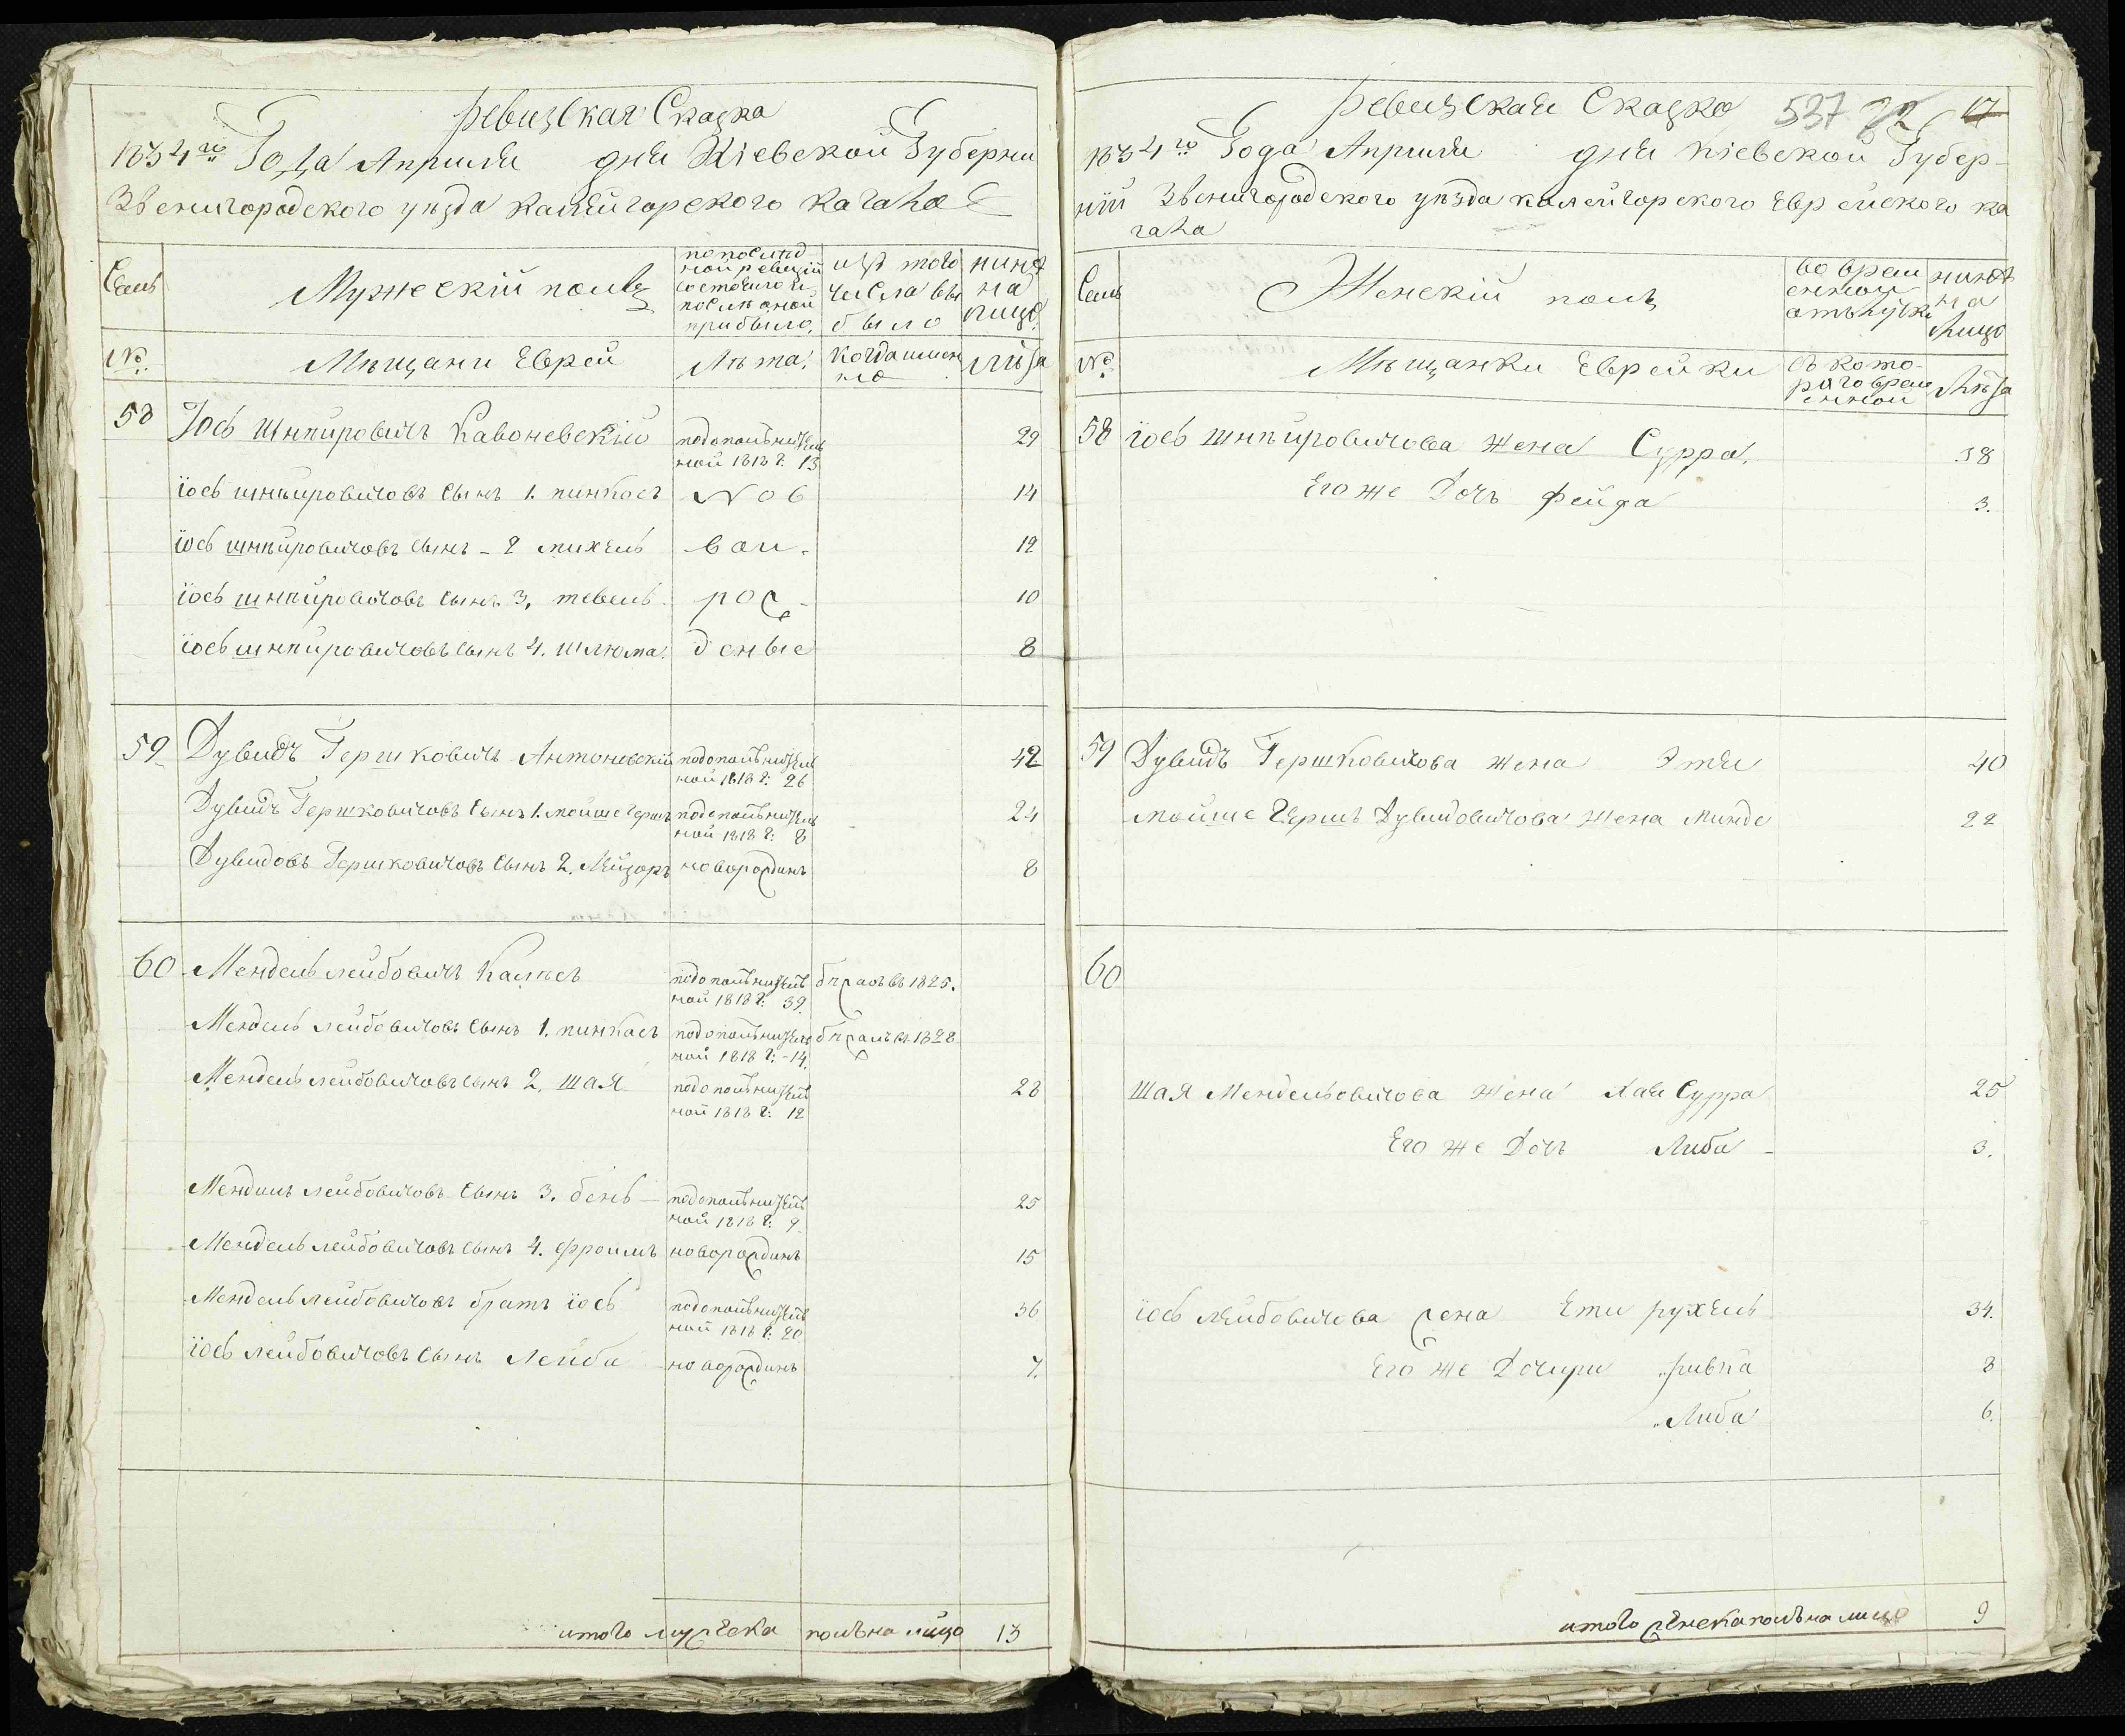 Ревизская Сказка
1834го Года Априля дня Кіевской Губерни
Звенигородского уезда калнигорского кагала
Семь
Мужескій полъ
по послед
ной ревизіи
состояло и
после оной
прибыло.
изъ того
числа вы
было
нине
на
лицо
№
Мещани Евреи
Лета
когда имен
но
лета
58 Іось Шнпировичъ Кавоневскій подополнител 29
ной 1818 г. 13
іось шнпировичовъ сынъ 1. пинкасъ Нов 14
іось шнпировичовъ сынъ - 2 михель во и. 12
іось шнпировичовъ сынъ 3. тевель рож 10
іось шнпировичовъ сынъ 4. шлюма. деные 8
59 Дувидъ Гершковичъ Антоновскій подополнител 42
ной 1818 г. 26
Дувидъ Гершковичовъ сынъ 1. мойше гершъ подополнител 24
ной 1818 г: 8
Дувидовъ Гершковичовъ сынъ 2. Лейзоръ новорождинъ 8
60 Мендель лейбовичъ подополнител бпжалъ въ 1825.
ной 1818 г: 39.
Мендель лейбовичовъ сынъ 1. пинкасъ подополнител бпжалъ в. 1828
ной 1818 г: - 14.
Мендель лейбовичовъ сынъ 2. шая подополнител 28
ной 1818 г: 12
Мендель лейбовичовъ сынъ 3. бень подополнител 25
ной 1818 г: 9
Мендель лейбовичовъ сынъ 4. фроимъ новорождинъ 15
Мендель лейбовичовъ братъ іось подополнител 36
ной 1818 г: 20
іось лейбовичовъ сынъ Лейба новорождинъ 7.
итого мужеска полъ на лицо 13
Ревизская Сказка 537 22 17
1834го Года Априля дня кіевской Губер-
ній Звенигородского уезда калнигорского Еврейского ка
гала
Семь
Женскій полъ
во врем
енной
отлучке
нине
на
лицо
№
Мещанки Еврейки
съ кото-
раго врем
енной
Лета
58 іось шнпировичова жена Сурра. 38
Его же Дочъ фейга 3.
59 Дувидъ Гершковичова жена Этля 40
мойше Гершъ Дувидовичова жена Минде 22
60
Шая Мендельовичова жена Хая Сурра 25
Его же Дочъ Либа - 3.
іось лейбовичова жена Ети рухель 34.
Его же Дочири „ривка 8
„Либа 6.
итого женска полъ на лицо 9